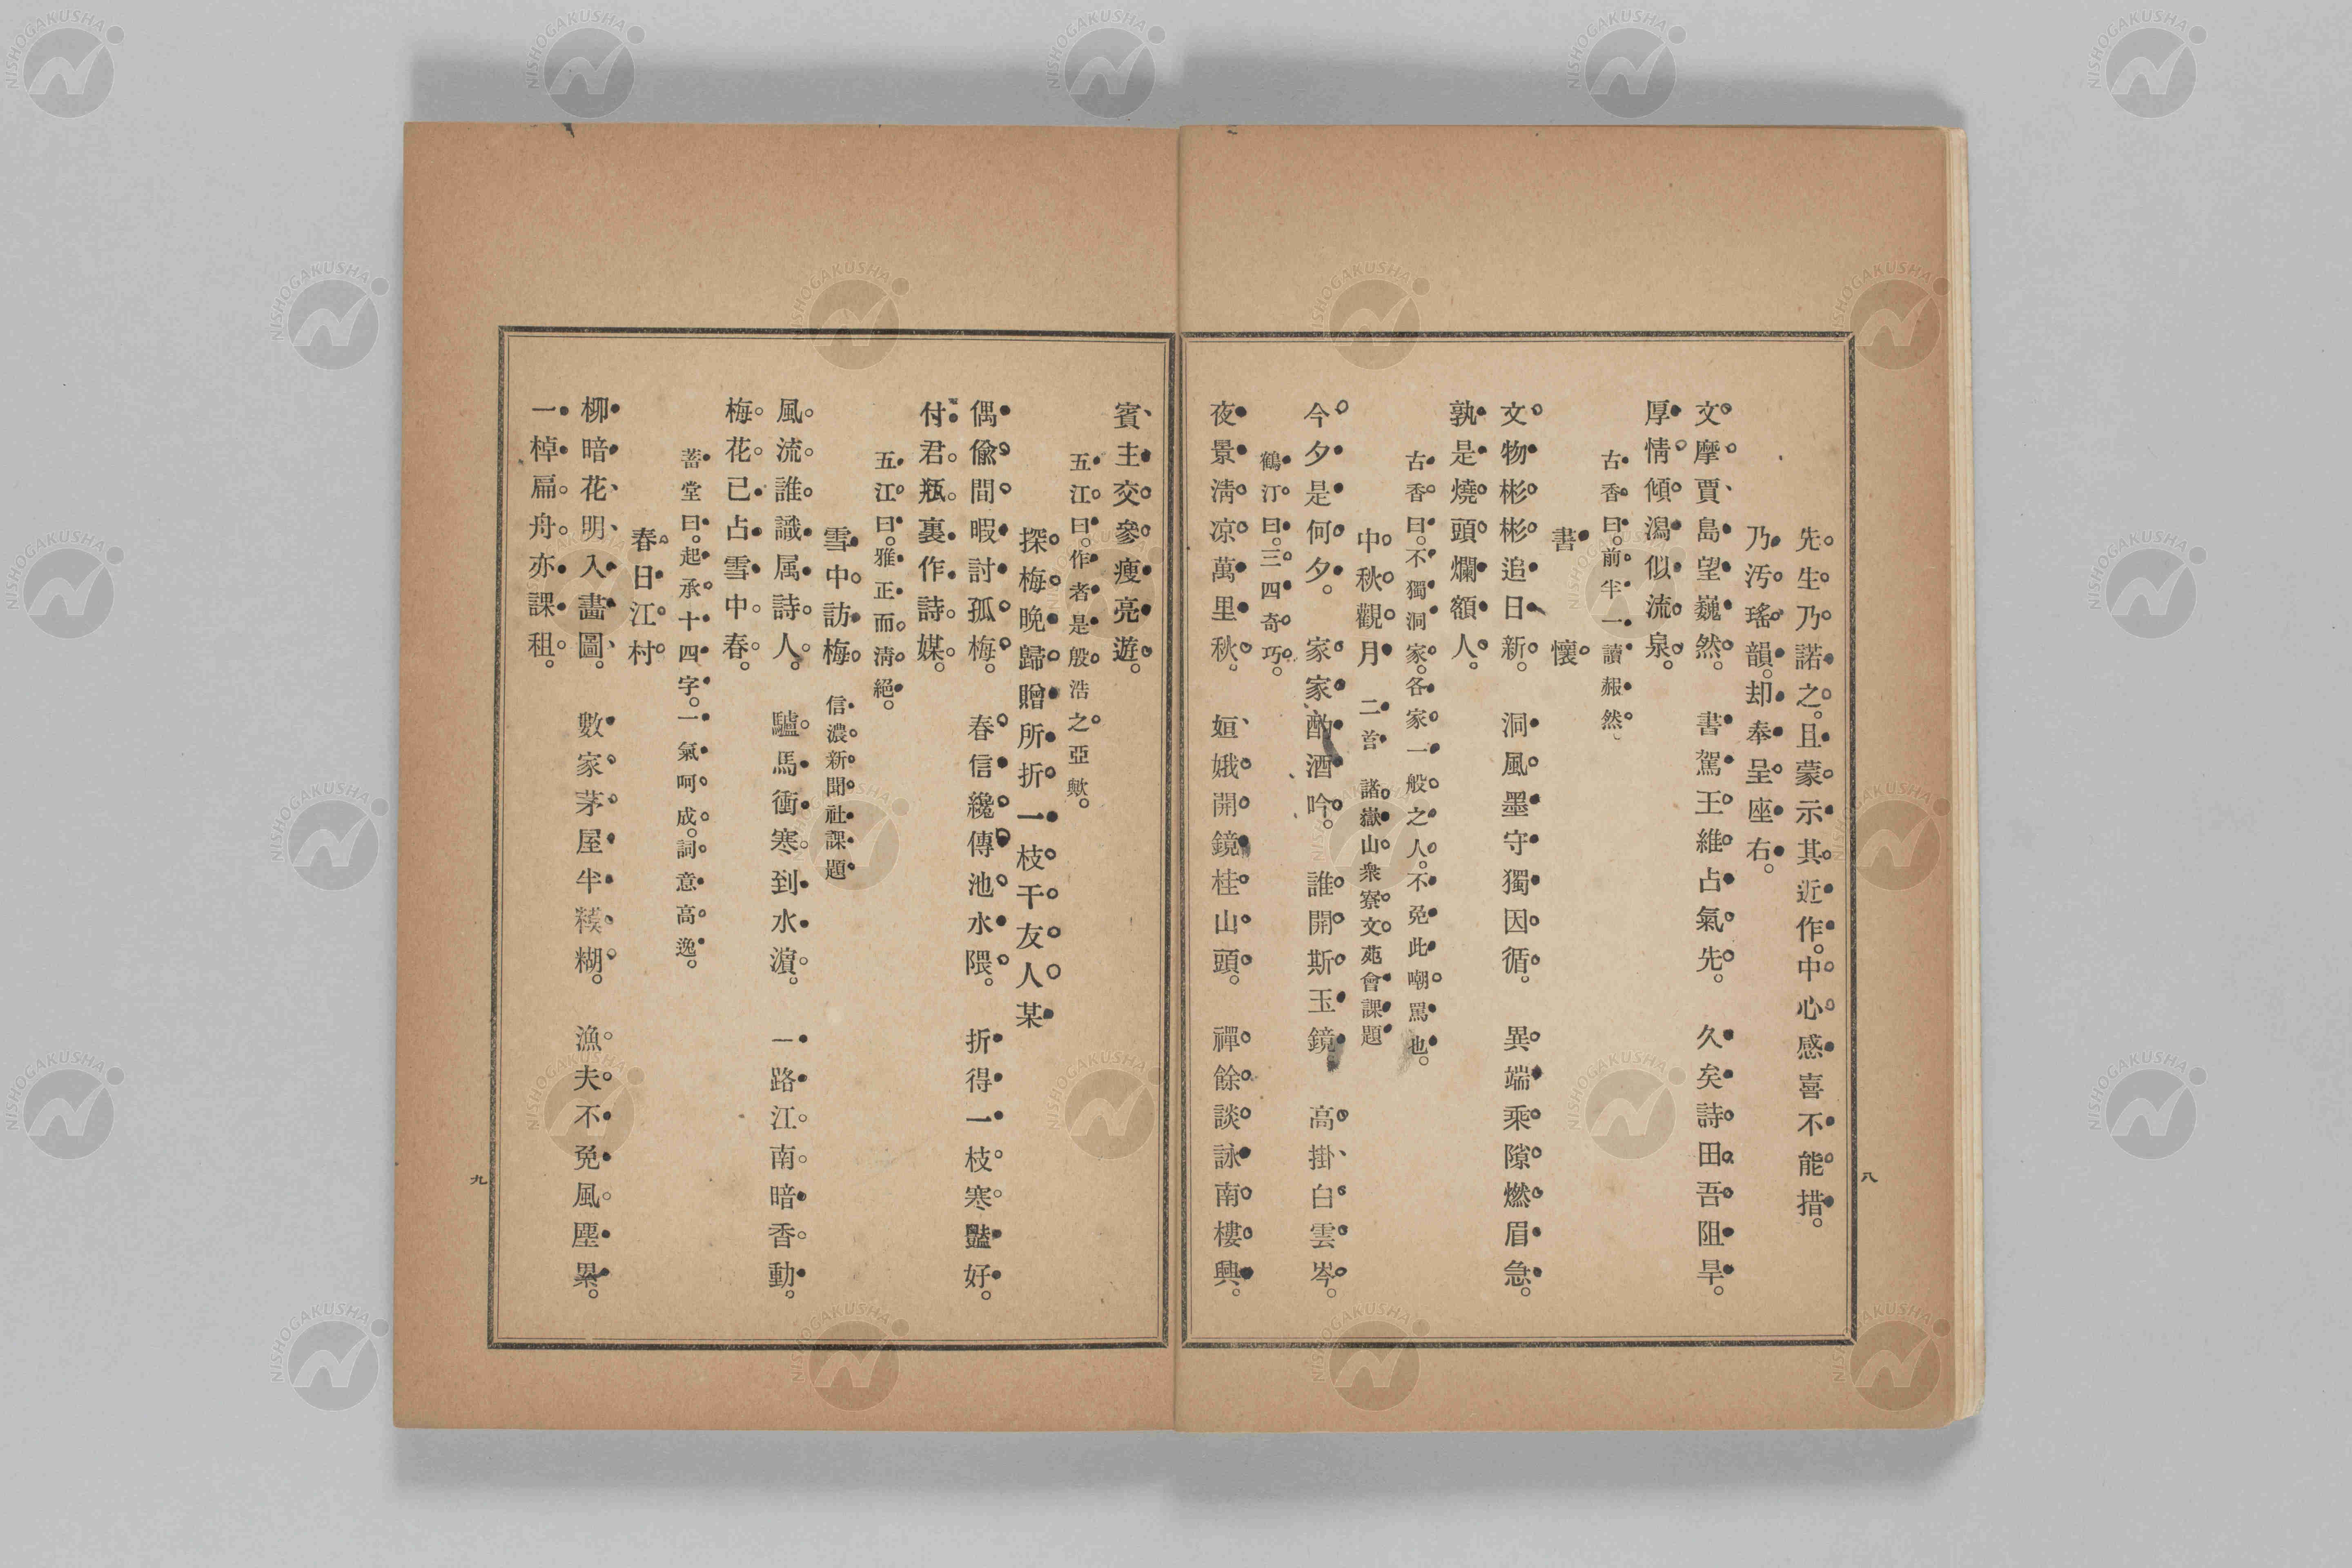 先生乃諾之。且蒙示其近作。中心感喜不能措。
乃汚瑤韻。却奉呈座右。
文摩賈島望巍然。　書駕王維占氣先。　久矣詩田吾阻旱。
厚情傾瀉似流泉。
古香曰。前半一讀赧然。
書　懷
文物彬彬追日新。　洞風墨守獨因循。　異端乘隙燃眉急。
孰是燒頭爛額人。
古香曰。不獨洞家。各家一般之人。不免此嘲罵也。
中秋觀月　二首　諸嶽山衆寮文苑會課題
今夕是何夕。　家家酌酒吟。　誰開斯玉鏡。　高掛白雲岑。
鶴汀曰。三四奇巧。
夜景淸凉萬里秋。　姮娥開鏡桂山頭。　禪餘談詠南樓興。
八
賓主交參瘦亮遊。
五江曰。作者是殷浩之亞歟。
探梅晩歸贈所折一枝于友人某
偶偸間暇討孤梅。　春信纔傳池水隈。　折得一枝寒豔好。
付君瓶裏作詩媒。
五江曰。雅正而淸絕。
雪中訪梅　信濃新聞社課題
風流誰識属詩人。　驢馬衝寒到水濵。　一路江南暗香動。
梅花已占雪中春。
蓄堂曰。起承十四字。一氣呵成。詞意高逸。
春日江村
柳暗花明入畫圖。　數家茅屋半糢糊。　漁夫不免風塵累。
一棹扁舟亦課租。
九
NISHOGAKUSHA